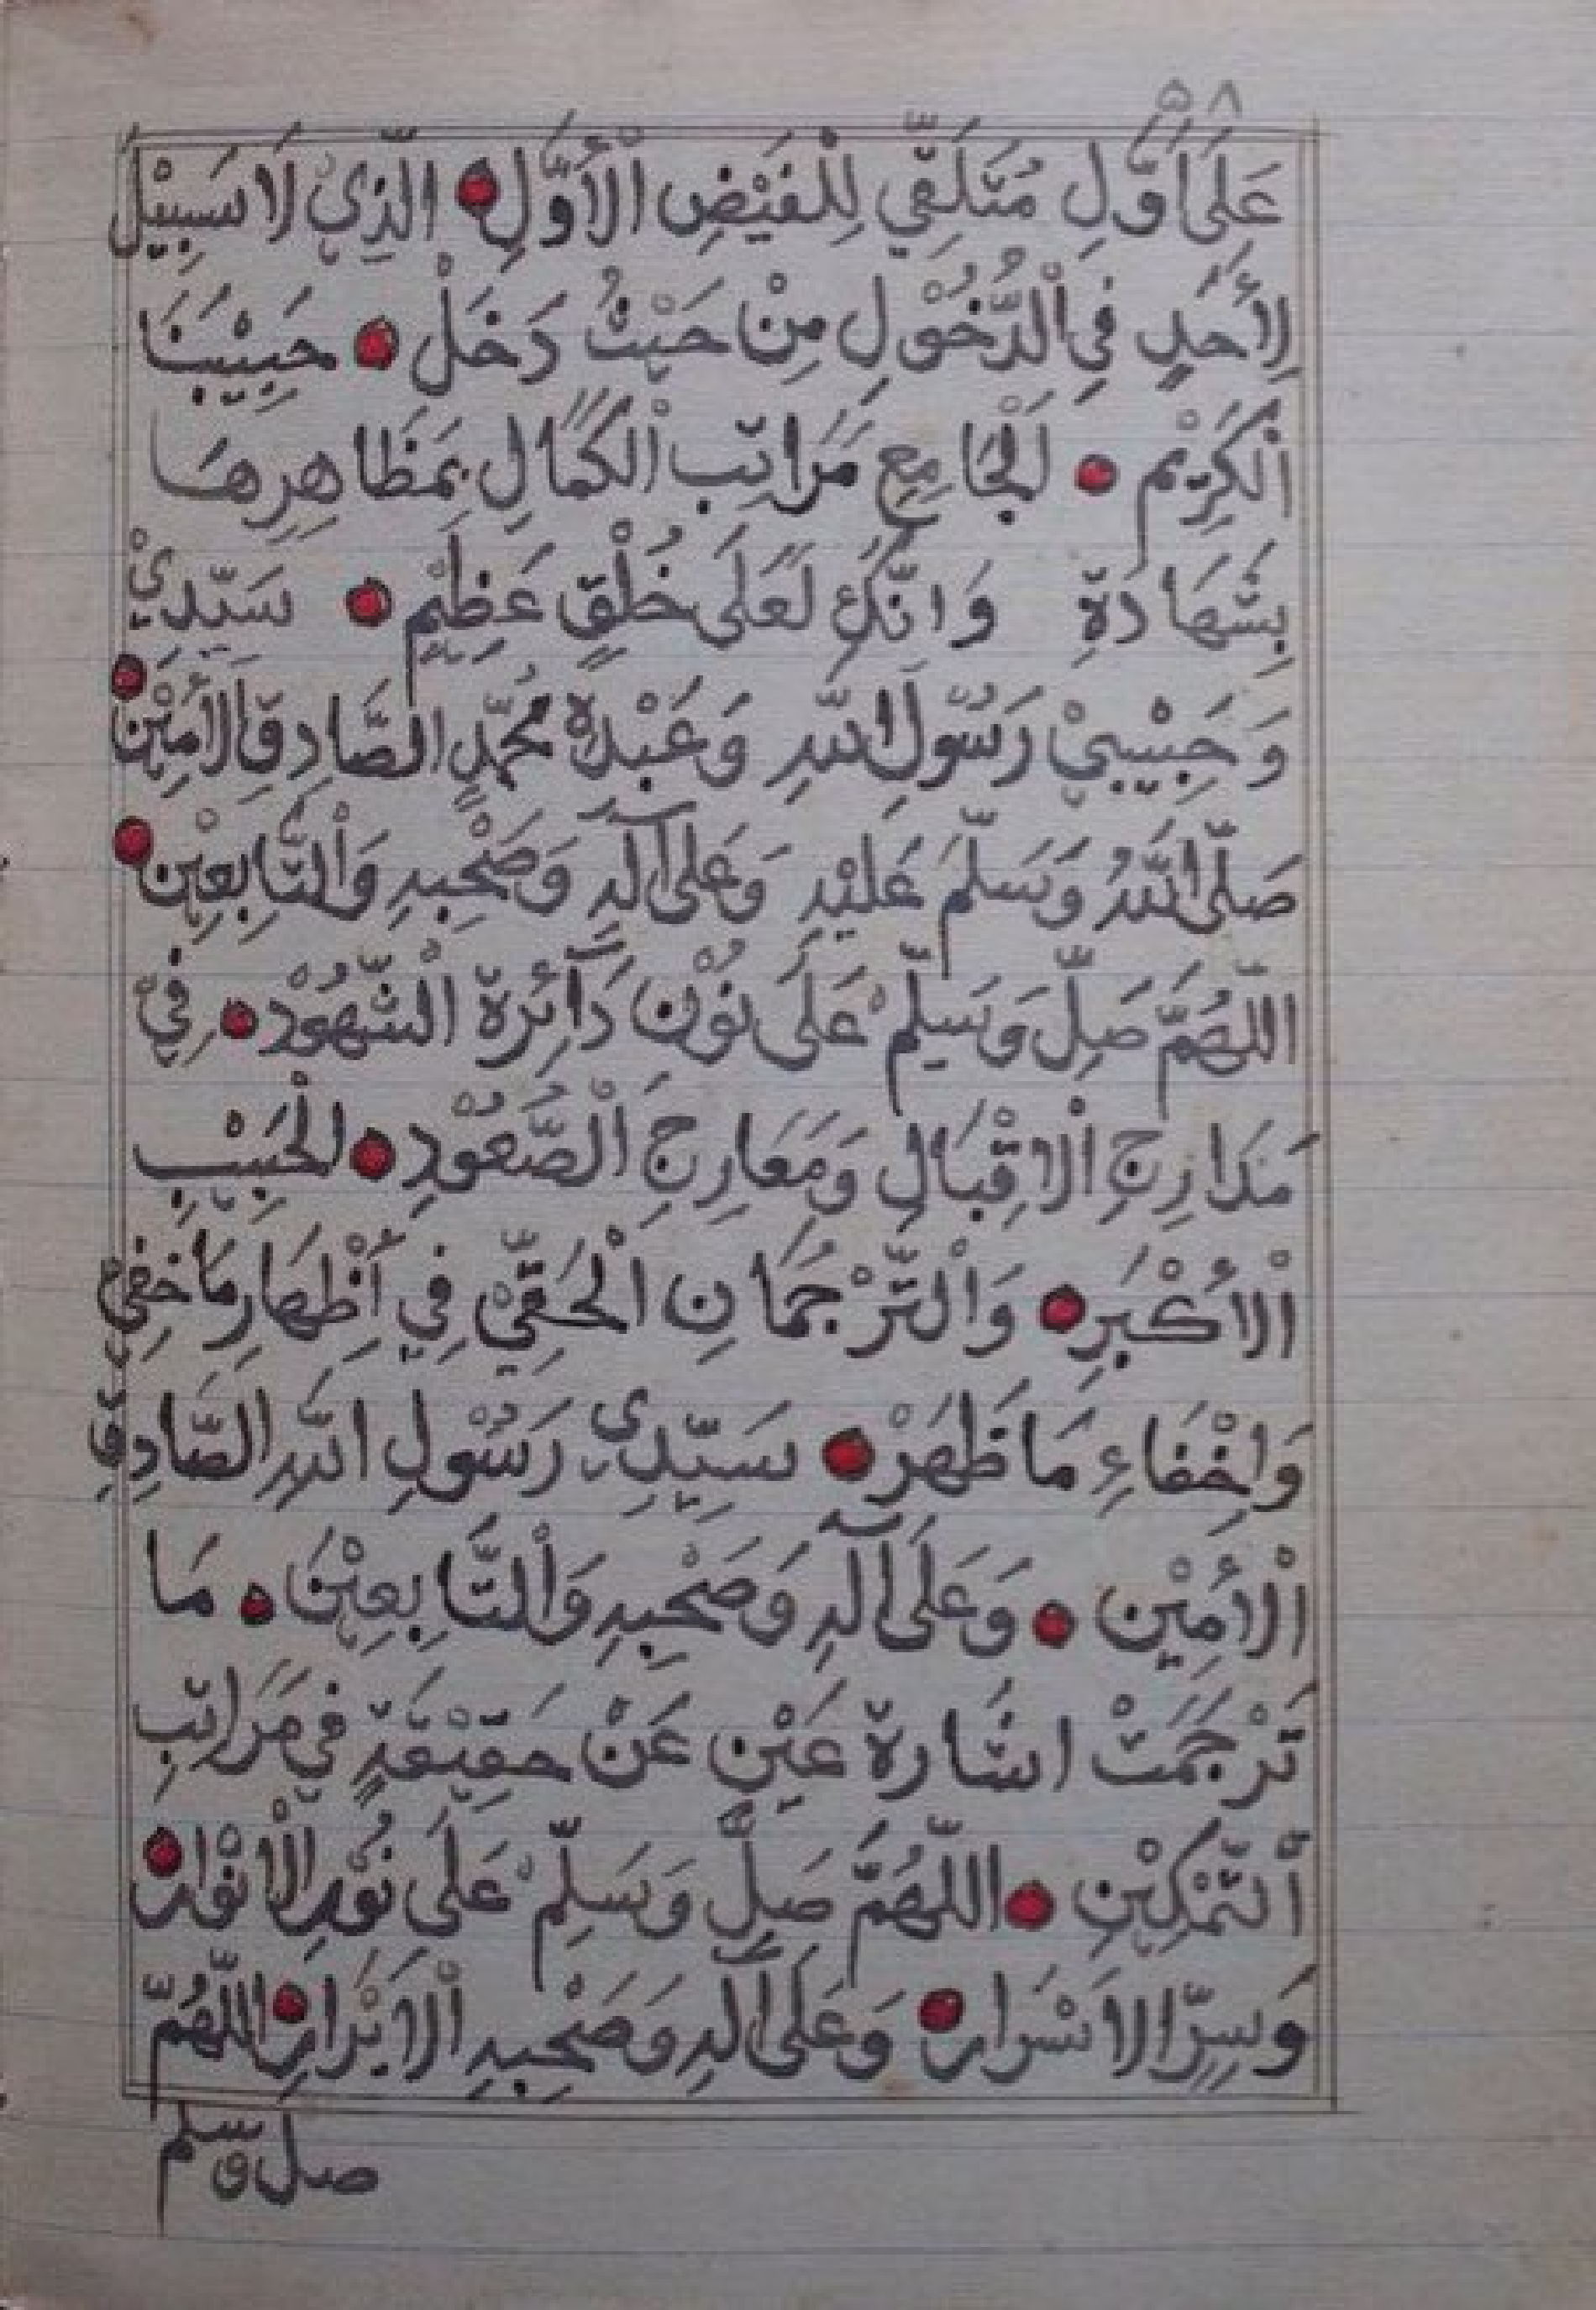 ٥٨
عَلَى أَوَّلِ مُتَلَقِّي لِلْفَيْضِ الْأَوَّلِ • الَّذِي لَا سَبِيْلَ
لِأَحَدٍ فِي الْدُّخُوْلِ مِنْ حَيْثُ دَخَلْ • حَبِيْبَنَا
الْكَرِيْم • لْجَامِعِ مَرَاتِب الْكَمَالِ بِمَظَاهِرِهَا
بِشَهَادَةِ وَانَّكَ لَعَلَى خُلْقٍ عَظِيْمٍ • سَيِّدِيْ
وَحَبِيْبِيْ رَسُوْلِ اللّٰهِ وَعَبْدِهْ مُحَمَّدٍ الصَّادِقِ الْأَمِيْن •
صَلَّى اللّٰهُ وَسَلَّمَ عَلَيْهِ وَعَلَى آلَهِ وَصَحْبِهِ وَالْتَّابِعِيْن •
اللّٰهُمَّ صَلِّ وَسَلِّمْ عَلَى نُوْنِ دَآئِرَةِ الْشُّهُوْدِ • فِيْ
مَدَارِجِ الْاِقْبَالِ وَمَعَارِجِ الْصُّعُوْدِ • الْحَبِيْبِ
الْأَكْبَرِ • وَالْتَّرْجُمَانِ الْحَقِّيْ فِي أِظْهَارِ مَا خَفِيَ
وَاِخْفَاءِ مَا ظَهَرْ • سَيِّدِي رَسُوْلِ اللّٰهِ الصَّادِقِ
الْأَمِيْن • وَعَلَى آلَهِ وَصَحْبِهِ وَالْتَّابِعِيْنَ • مَا
تَرْجَمَتْ اشَارَة عَيْنٍ عَنْ حَقِيْقَةٍ فِي مَرَاتِبِ
أَلتَّمْكِيْنِ • اللّٰهُمَّ صَلِّ وَسَلِّمْ عَلَى نُوْرِ الْأنْوَار •
وَسِرِّ الاَسْرَار • وَعَلَى آلَهِ وَصَحْبِهِ الْاَبْرَارِ • اللّٰهُمَّ
صل وسلم